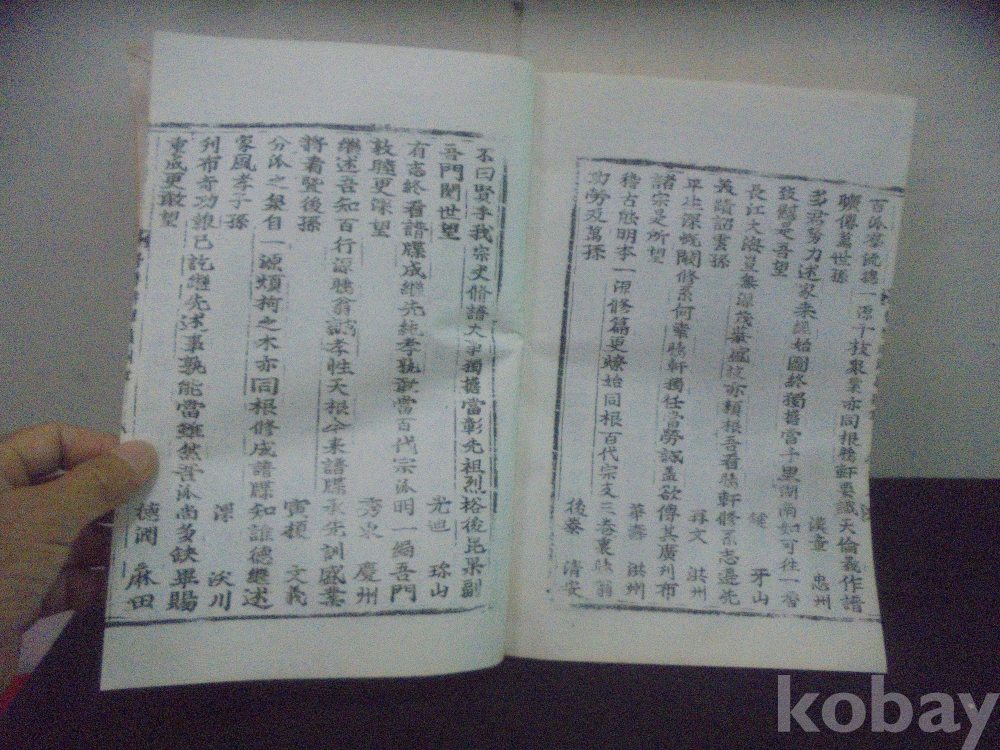 百派群流總一源千枝衆葉亦同根勝軒要識天倫義作譜
聯傳萬世孫
漢章 忠州
多君努力述家乘經始圖終獨擔當千里湖南知可往一番
致賀是吾望
牙山
長江大海豈無源茂葉 枝亦類根吾看勝軒修系志遺先
義蹟詔雲孫
文 洪州
平止深 閥修系何業勝軒獨任當勞誠盖欲傳其廣列布
諸宗是所望
華壽 洪州
稽古能明本一源修篇更瞭始同根百代宗支三卷裏勝翁
功勞及萬孫
後泰 清安
不曰賢乎我宗丈修譜大事獨擔當彰先祖烈裕後昆果副
吾門閥世望
光迪 珎山
有志終看譜牒成繼先統孝孰 當百代宗派明一編吾門
敦睦更深望
秀東 慶州
繼述吾知百行源聴翁誠孝性天根今来譜牒承先訓盛業
將看發後孫
寅穆 文義
分派之衆自一源煩拘之木亦同根修成譜牒知誰德繼述
家風孝子孫
澤 沃川
列布奇功報已訖繼先述事孰能當雖然吾派尚多缺畢賜
重成更敢望
德潤 麻田
kobay